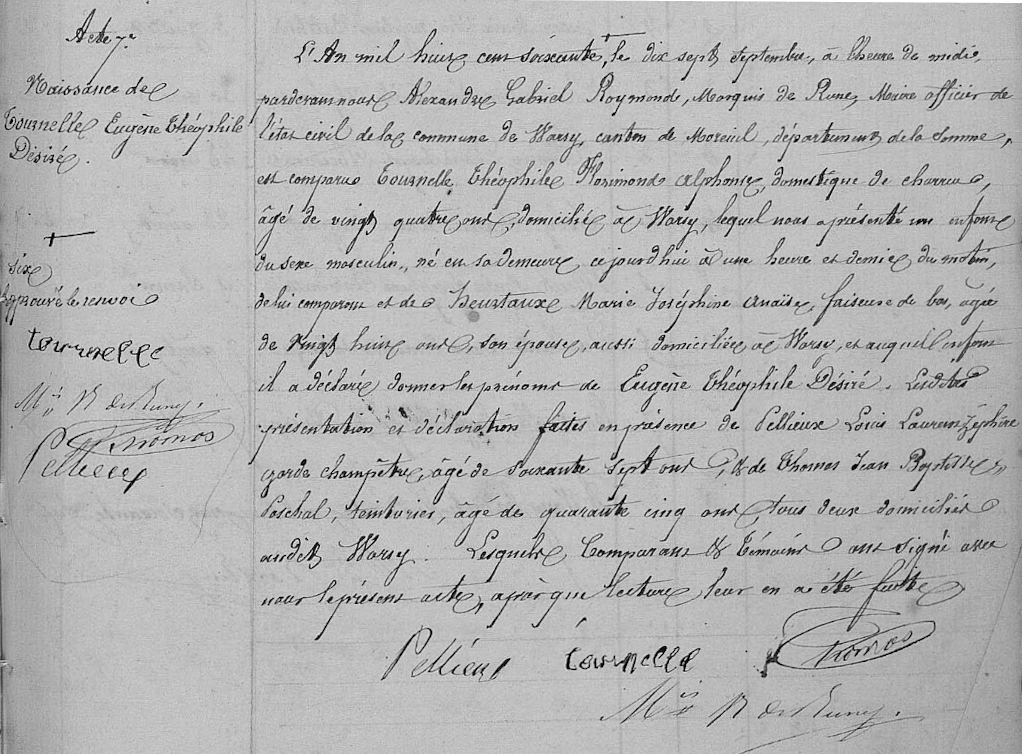 Acte 7e
Naissance de
Tournelle Eugène Théophile
Désiré.
+
six
Approuvé le renvoi
tournelle
Mis R de Runes.
Thomas
Pellieux
L'An mil huit cent soixante + le dix sept septembre, à l'heure de midi,
pardevant nous Alexandre Gabriel Raymond, Marquis de Rune, Maire officier de
l'état civil de la commune de Warsy, canton de Moreuil, département de la Somme,
est comparu Tournelle Théophile Florimond Alphonse, domestique de charrue,
âgé de vingt quatre ans, domicilié à Warsy, lequel nous a présenté un enfant
du sexe masculin, né en sa demeure cejourd'hui à une heure et demie du matin,
de lui comparant et de Heurtaux Marie Joséphine Anaïse, faiseuse de bas, âgée
de vingt huit ans, son épouse, aussi domiciliée à Warsy, et auquel enfant
il a déclaré donner les prénoms de Eugène Théophile Désiré. Lesdites
présentation et déclaration faites en présence de Pellieux Louis Laurent Zéphire
garde champêtre, âgé de soixante sept ans, & de Thomas Jean Baptiste
Paschal, teinturier, âgé de quarante cinq ans, tous deux domiciliés
audit Warsy. Lesquels Comparant & Témoins ont signé avec
nous le présent acte, après que lecture leur en a été faite
Pellieux tournelle Thomas
Mis R de Runes.